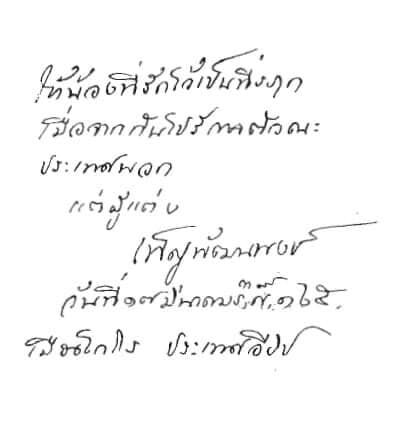 ให้น้องที่รักไว้เป็นที่ระฤก
เมื่อจากกันไปรักษาตัวณะ
ประเทศพวก
แต่ผู้แต่ง
เพ็ญพัฒนพงษ์
วันที่๑๗มีนาคม ร,ศ,๑๒๕,
เมืองไกโร ประเทศอียิป